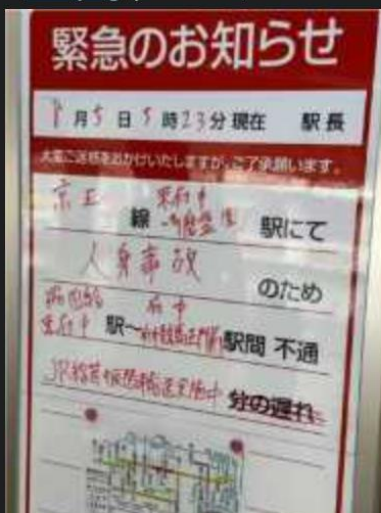 緊急のお知らせ
月5日5時23分現在 駅長
大変ご迷惑をおかけいたしますが、ご了承願います。
京王 東府中
線 駅にて
人身事故 のため
府中
東府中 駅〜府中競馬正門前駅間 不通
JR 振替輸送実施中 分の遅れ